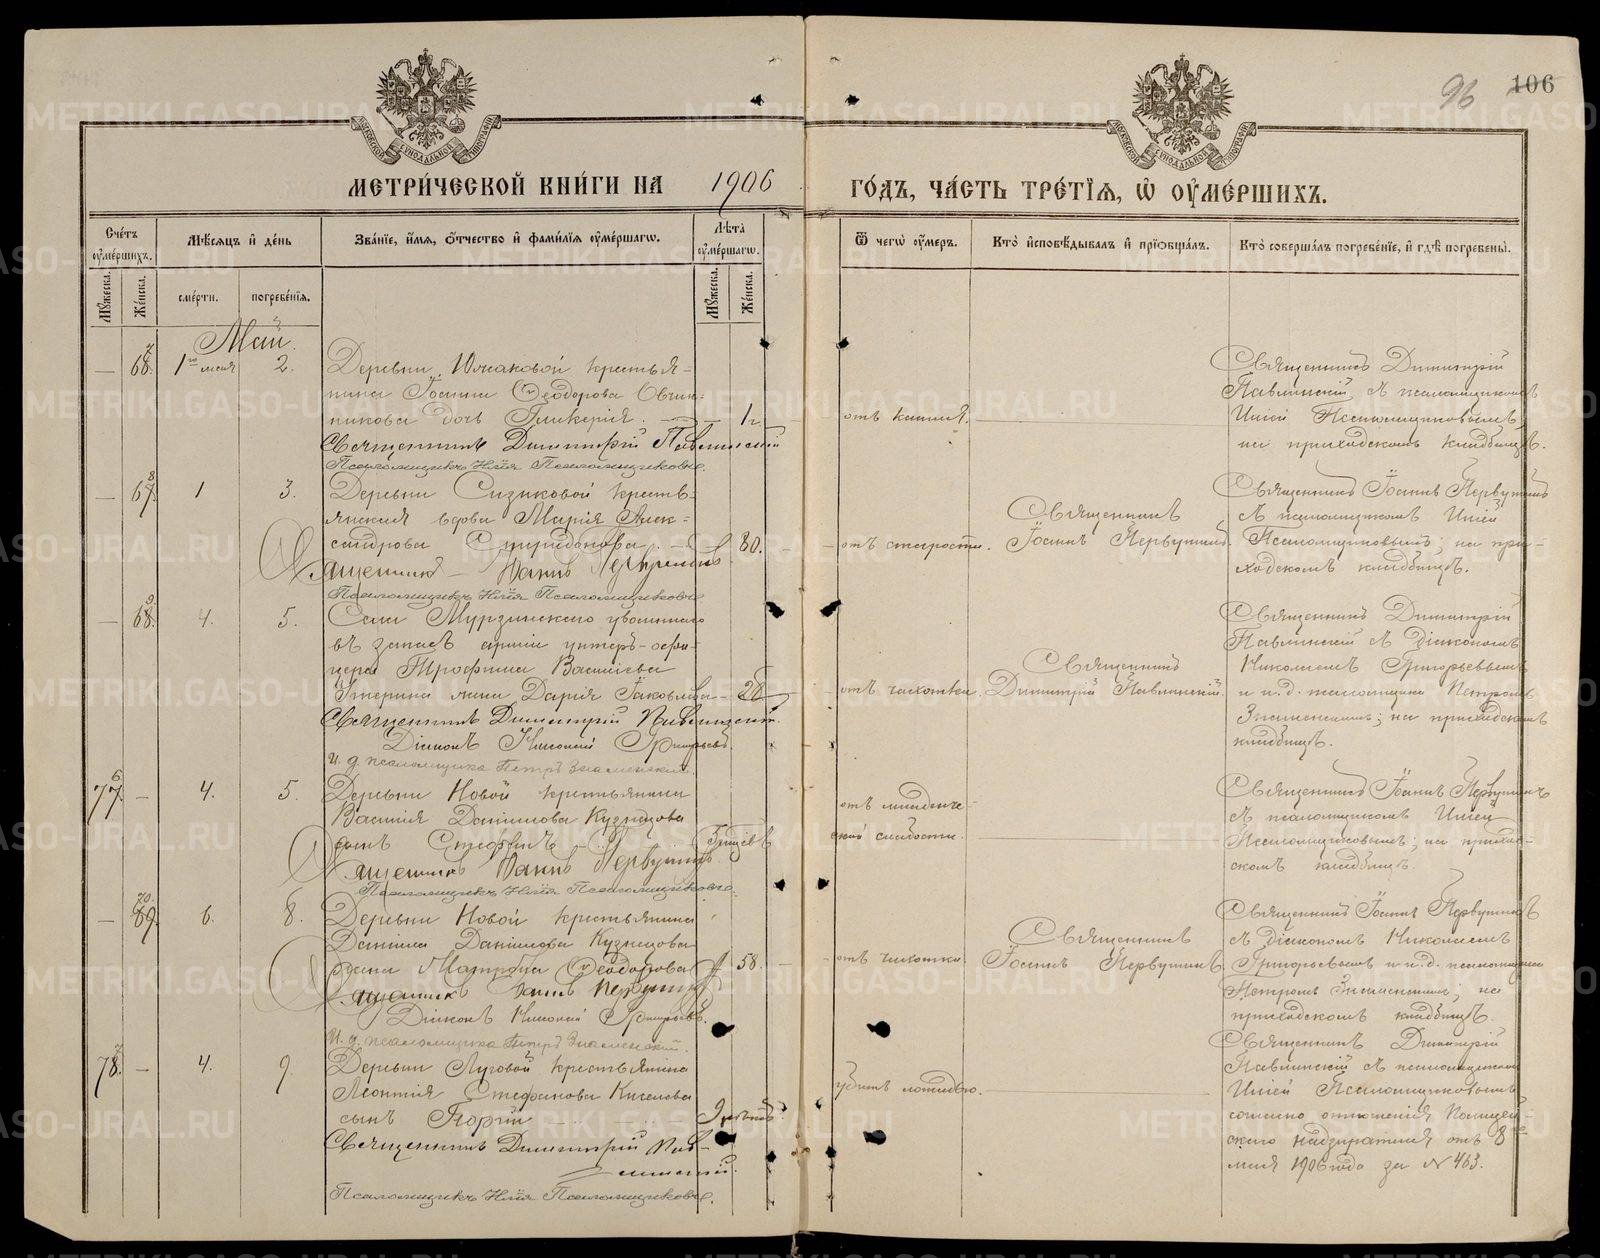 96 106
МОСКОВСКОЙ СУНОДАЛЬНОЙ ТИПОГРАФІИ
МОСКОВСКОЙ СУНОДАЛЬНОЙ ТИПОГРАФІИ
МЕТРИ́ЧЕСКОЙ КНИ́ГИ НА 1906 ГО́ДЪ, ЧА́СТЬ ТРЕ́ТІѦ, Ѡ҆ ОУ҆МЕ́РШИХЪ.
Сче́тъ оу҆ме́ршихъ.
Мꙋ́жеска.
Же́нска.
Мѣ́сѧцъ и҆ де́нь
сме́рти.
погребе́нїѧ.
Зва́нїе, и҆́мѧ, ѻ҆́тчество и҆ фами́лїѧ оу҆ме́ршагѡ.
Лѣ́та оу҆ме́ршагѡ.
Мꙋ́жеска.
Же́нска.
Ѿ чегѡ̀ оу҆́меръ.
Кто̀ и҆сповѣ́дывалъ и҆ прїѡбща́лъ.
Кто̀ соверша́лъ погребе́нїе, и҆ гдѣ̀ погребены̀.
Май.
— 1го мая 2.
Деревни Южаковой крестья-
нина Іоанна Ѳеодорова Овчин-
никова дочь Гликерія. — 1 г.
Священникъ Димитрій Павлинскій
Псаломщикъ Илія Псаломщиковъ.
отъ кашля.
Священникъ Димитрій
Павлинскій съ псаломщикомъ
Иліей Псаломщиковымъ,
на приходскомъ кладбищѣ.
— 67. 1 3.
Деревни Сизиковой кресть-
янская вдова Марія Алек-
сандрова Спиридонова. — 80.
Священникъ Іоаннъ Первушинъ
Псаломщикъ Илія Псаломщиковъ
отъ старости.
Священникъ
Іоаннъ Первушинъ.
Священникъ Іоаннъ Первушинъ
съ псаломщикомъ Иліей
Псаломщиковымъ; на при-
ходскомъ кладбищѣ.
— 68. 4. 5.
Села Мурзинскаго уволеннаго
въ запасъ арміи унтеръ-офи-
цера Трофима Васильева
жена Дарія Іаковлева — 28
Священникъ Димитрій Павлинскій.
Діаконъ Николай Григорьевъ.
И. д. псаломщика Петръ Знаменскій.
отъ чахотки.
Священникъ
Димитрій Павлинскій.
Священникъ Димитрій
Павлинскій съ діакономъ
Николаемъ Григорьевымъ
и и. д. псаломщика Петромъ
Знаменскимъ; на приходскомъ
кладбищѣ.
77. — 4. 5.
Деревни Новой крестьянина
Василія Даніилова Кузнецова
сынъ Стефанъ
Священникъ Іоаннъ Первушинъ
Псаломщикъ Илія Псаломщиковъ.
отъ младенче-
ской слабости.
Священникъ Іоаннъ Первушинъ
съ псаломщикомъ Иліей
Псаломщиковымъ; на приход-
скомъ кладбищѣ.
— 69. 6. 8.
Деревни Новой крестьянина
Даніила Даніилова Кузнецова
жена Матрона Ѳеодорова 58.
Священникъ Іоаннъ Первушинъ
Діаконъ Николай Григорьевъ.
И. д. псаломщика Петръ Знаменскій.
отъ чахотки.
Священникъ
Іоаннъ Первушинъ.
Священникъ Іоаннъ Первушинъ
съ діакономъ Николаемъ
Григорьевымъ и и. д. псаломщика
Петромъ Знаменскимъ; на
приходскомъ кладбищѣ.
78. — 4. 9.
Деревни Луговой крестьянина
Леонтія Стефанова Киселева
сынъ Георгій 9 лѣтъ.
Священникъ Димитрій Пав-
линскій.
Псаломщикъ Илія Псаломщиковъ.
убитъ лошадью.
Священникъ Димитрій
Павлинскій съ псаломщикомъ
Иліей Псаломщиковымъ
согласно отношенія Полицей-
скаго надзирателя отъ 8го
мая 1906 года за № 463.
METRIKI.GASO-URAL.RU